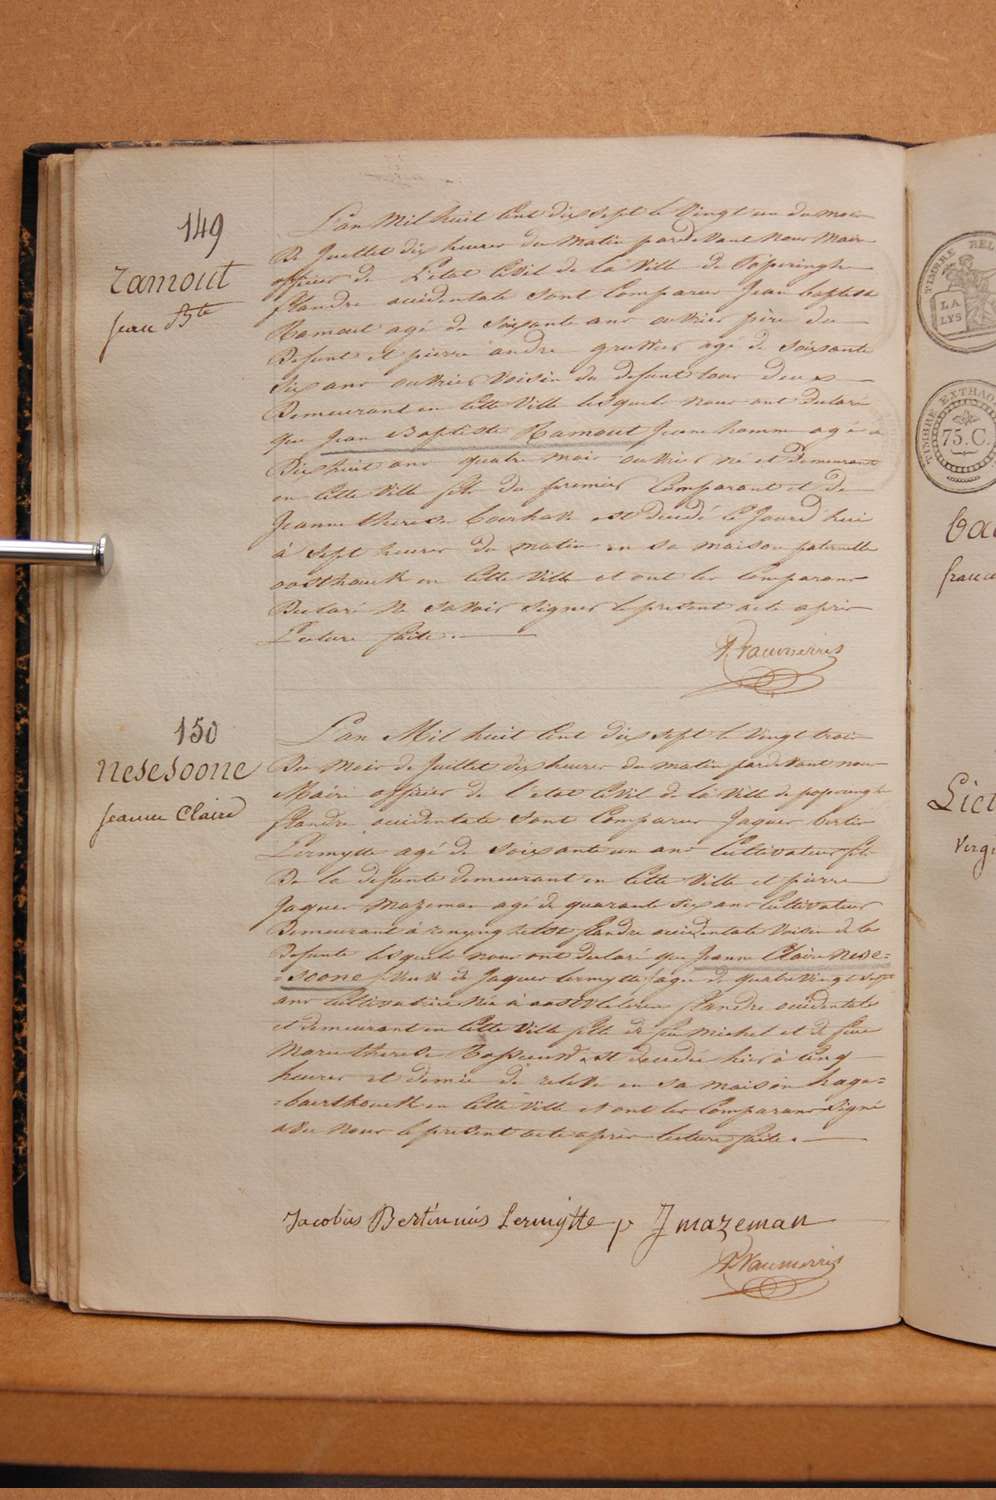 149
ramout
jean Bte
L'an Mil huit Cent dix Sept le Vingt un du mois
De Juillet dix heures du Matin pardeVant Nous Maire
officier de L'état CiVil de la Ville de Poperinghe
flandre occidentale Sont Comparus Jean baptiste
Ramout agé de Soixante ans ouvrier père du
Defunt et pierre andre gruttier agé de Soixante
Six ans ouvrier Voisin du defunt tous deux
Demeurant en Cette Ville lesquels nous ont declaré
que Jean Baptiste Ramout Jeune homme agé de
Dixhuit ans quatre mois ouvrier né et Demeurant
en Cette Ville fils du premier Comparant et de
Jeanne therese est decédé Ce Jourd'hui
à Sept heures du matin en sa maison paternelle
oosthouck en Cette Ville et ont les Comparans
Declaré Ne Savoir Signer le présent acte après
Lecture faite.
150
nesesoone
jeanne Claire
L'an Mil huit Cent dix Sept le Vingt trois
Du Mois de Juillet dix heures du matin pardeVant nous
Maire officier de l'état CiVil de la Ville de poperinghe
flandre occidentale Sont Comparus Jaques bertin
Lermytte agé de Soixante un ans Cultivateur fils
De la defunte demeurant en Cette Ville et pierre
Jaques Mazeman agé de quarante Six ans Cultivateur
Demeurant à renynghelst flandre occidentale Voisin de la
Defunte lesquels nous ont declaré que Jeanne Claire Nese=
=soone VeuVe de Jaques Lermytte agée de quatre Vingt Sept
ans CultiVatrice Née à oostVleteren flandre occidentale
et demeurant en Cette Ville fille de feu Michel et de feue
Marie therese est decedée hier à Cinq
heures et demie de releVé en sa maison haga=
=baerthouck en Cette Ville et ont les Comparans Signé
aVec Nous le present acte après lecture faite.
Jacobus Bertinnus Lermytte p J mazeman
TIMBRE
LA
LYS
TIMBRE
75.C.
franc